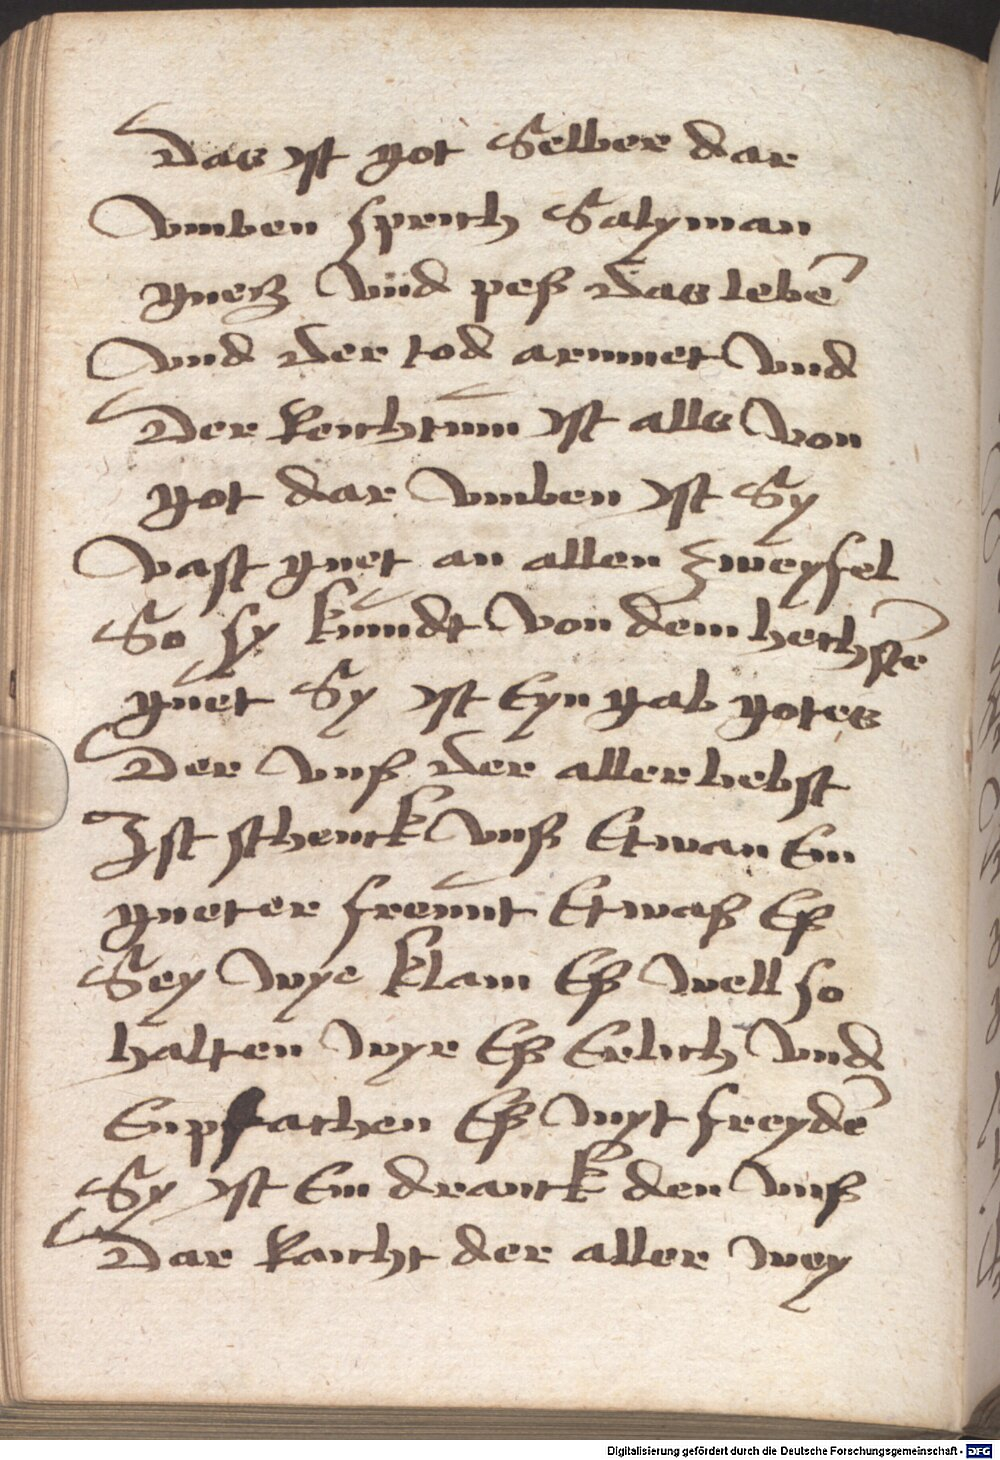 Das ist got Selber dar
vmben sprich Salyman
guetz vnd peß das lebē
vnd der tod armuet vnd
Der Reichtum ist alls von
got dar vmben ist Sy
vast guet an allen zweyfel
So sy kumdt von dem hechstē
guet Sy ist Eyn gab gotes
Der vnß der aller liebst
Ist schenck vnß Etwan Ein
gueter freunt Etwaß Eß
Sey wye klam Eß well so
halten wyr Eß Erlich vnd
Enpfachen Eß myt freydē
Sy ist Ein dranck den vnß
Dar Raicht der aller wey
Digitalisierung gefördert durch die Deutsche Forschungsgemeinschaft - DFG